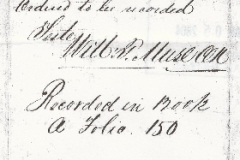 Ordered to be recorded
Teste
Will. P. Muse CCK
Recorded in Book
A Folio. 150